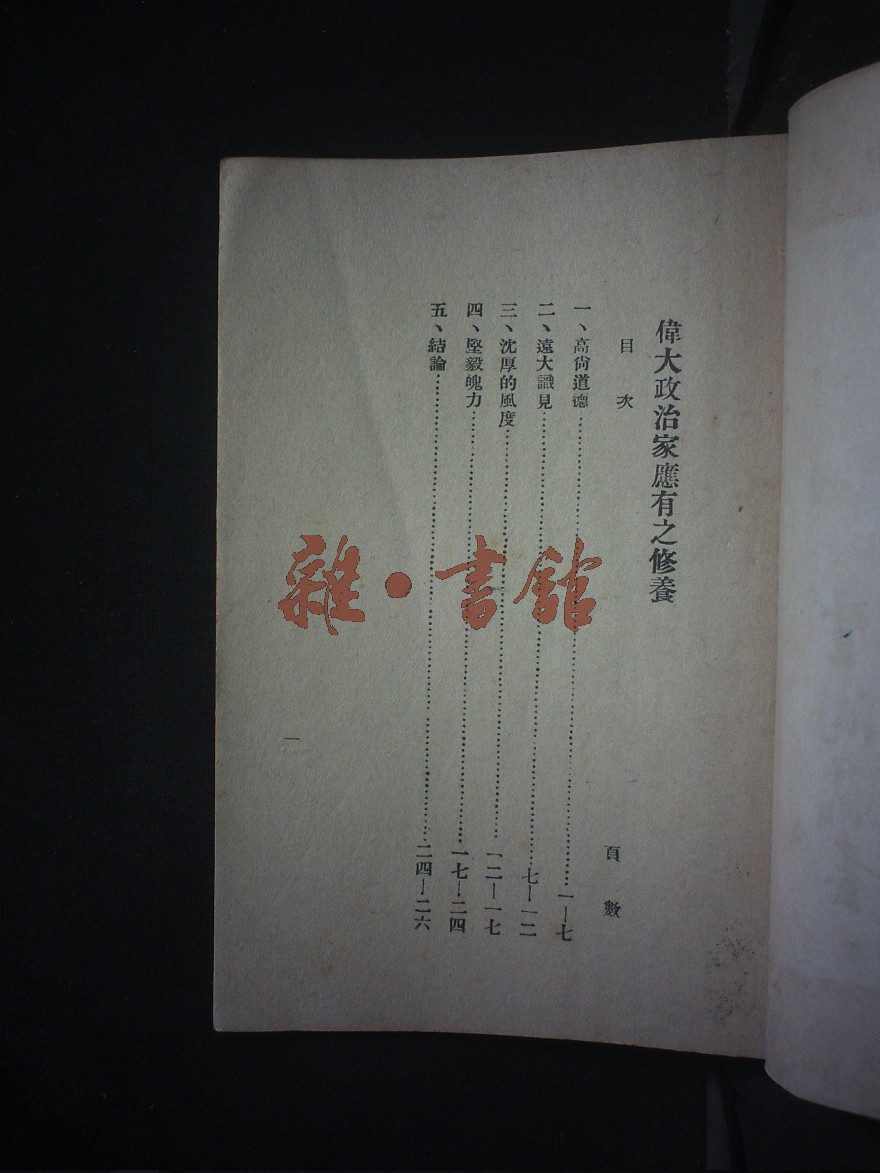 偉大政治家應有之修養
目次
頁數
一、高尙道德……一—七
二、遠大識見……七—一二
三、沈厚的風度……一二—一七
四、堅毅魄力……一七—二四
五、結論……二四—二六
一
雜·書館